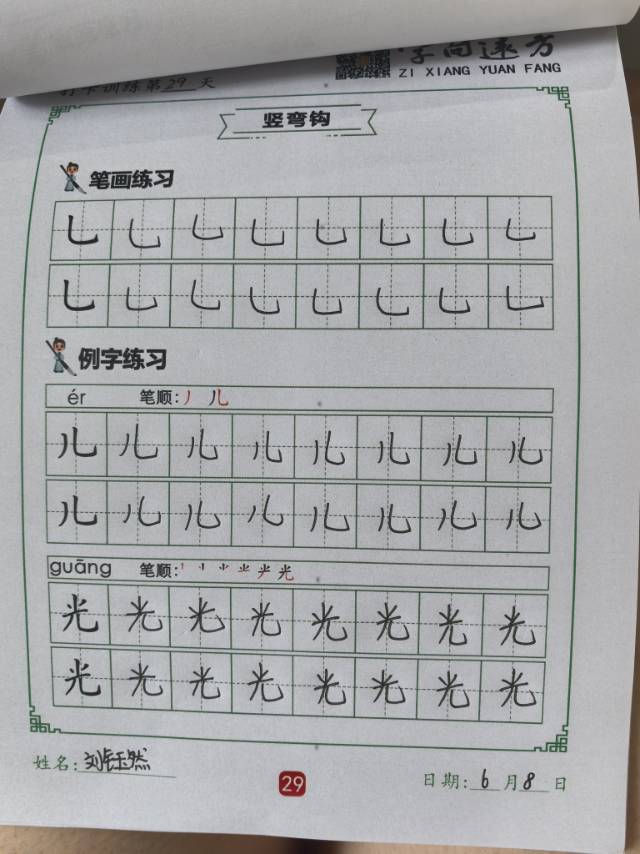 字向远方
ZI XIANG YUAN FANG
打卡训练第29天
竖弯钩
笔画练习
乚 乚 乚 乚 乚 乚 乚 乚
乚 乚 乚 乚 乚 乚 乚 乚
例字练习
ér 笔顺: 丿 儿
儿 儿 儿 儿 儿 儿 儿 儿
儿 儿 儿 儿 儿 儿 儿 儿
guāng 笔顺:
光 光 光 光 光 光 光 光
光 光 光 光 光 光 光 光
姓名: 刘 然
29
日期: 6 月 8 日